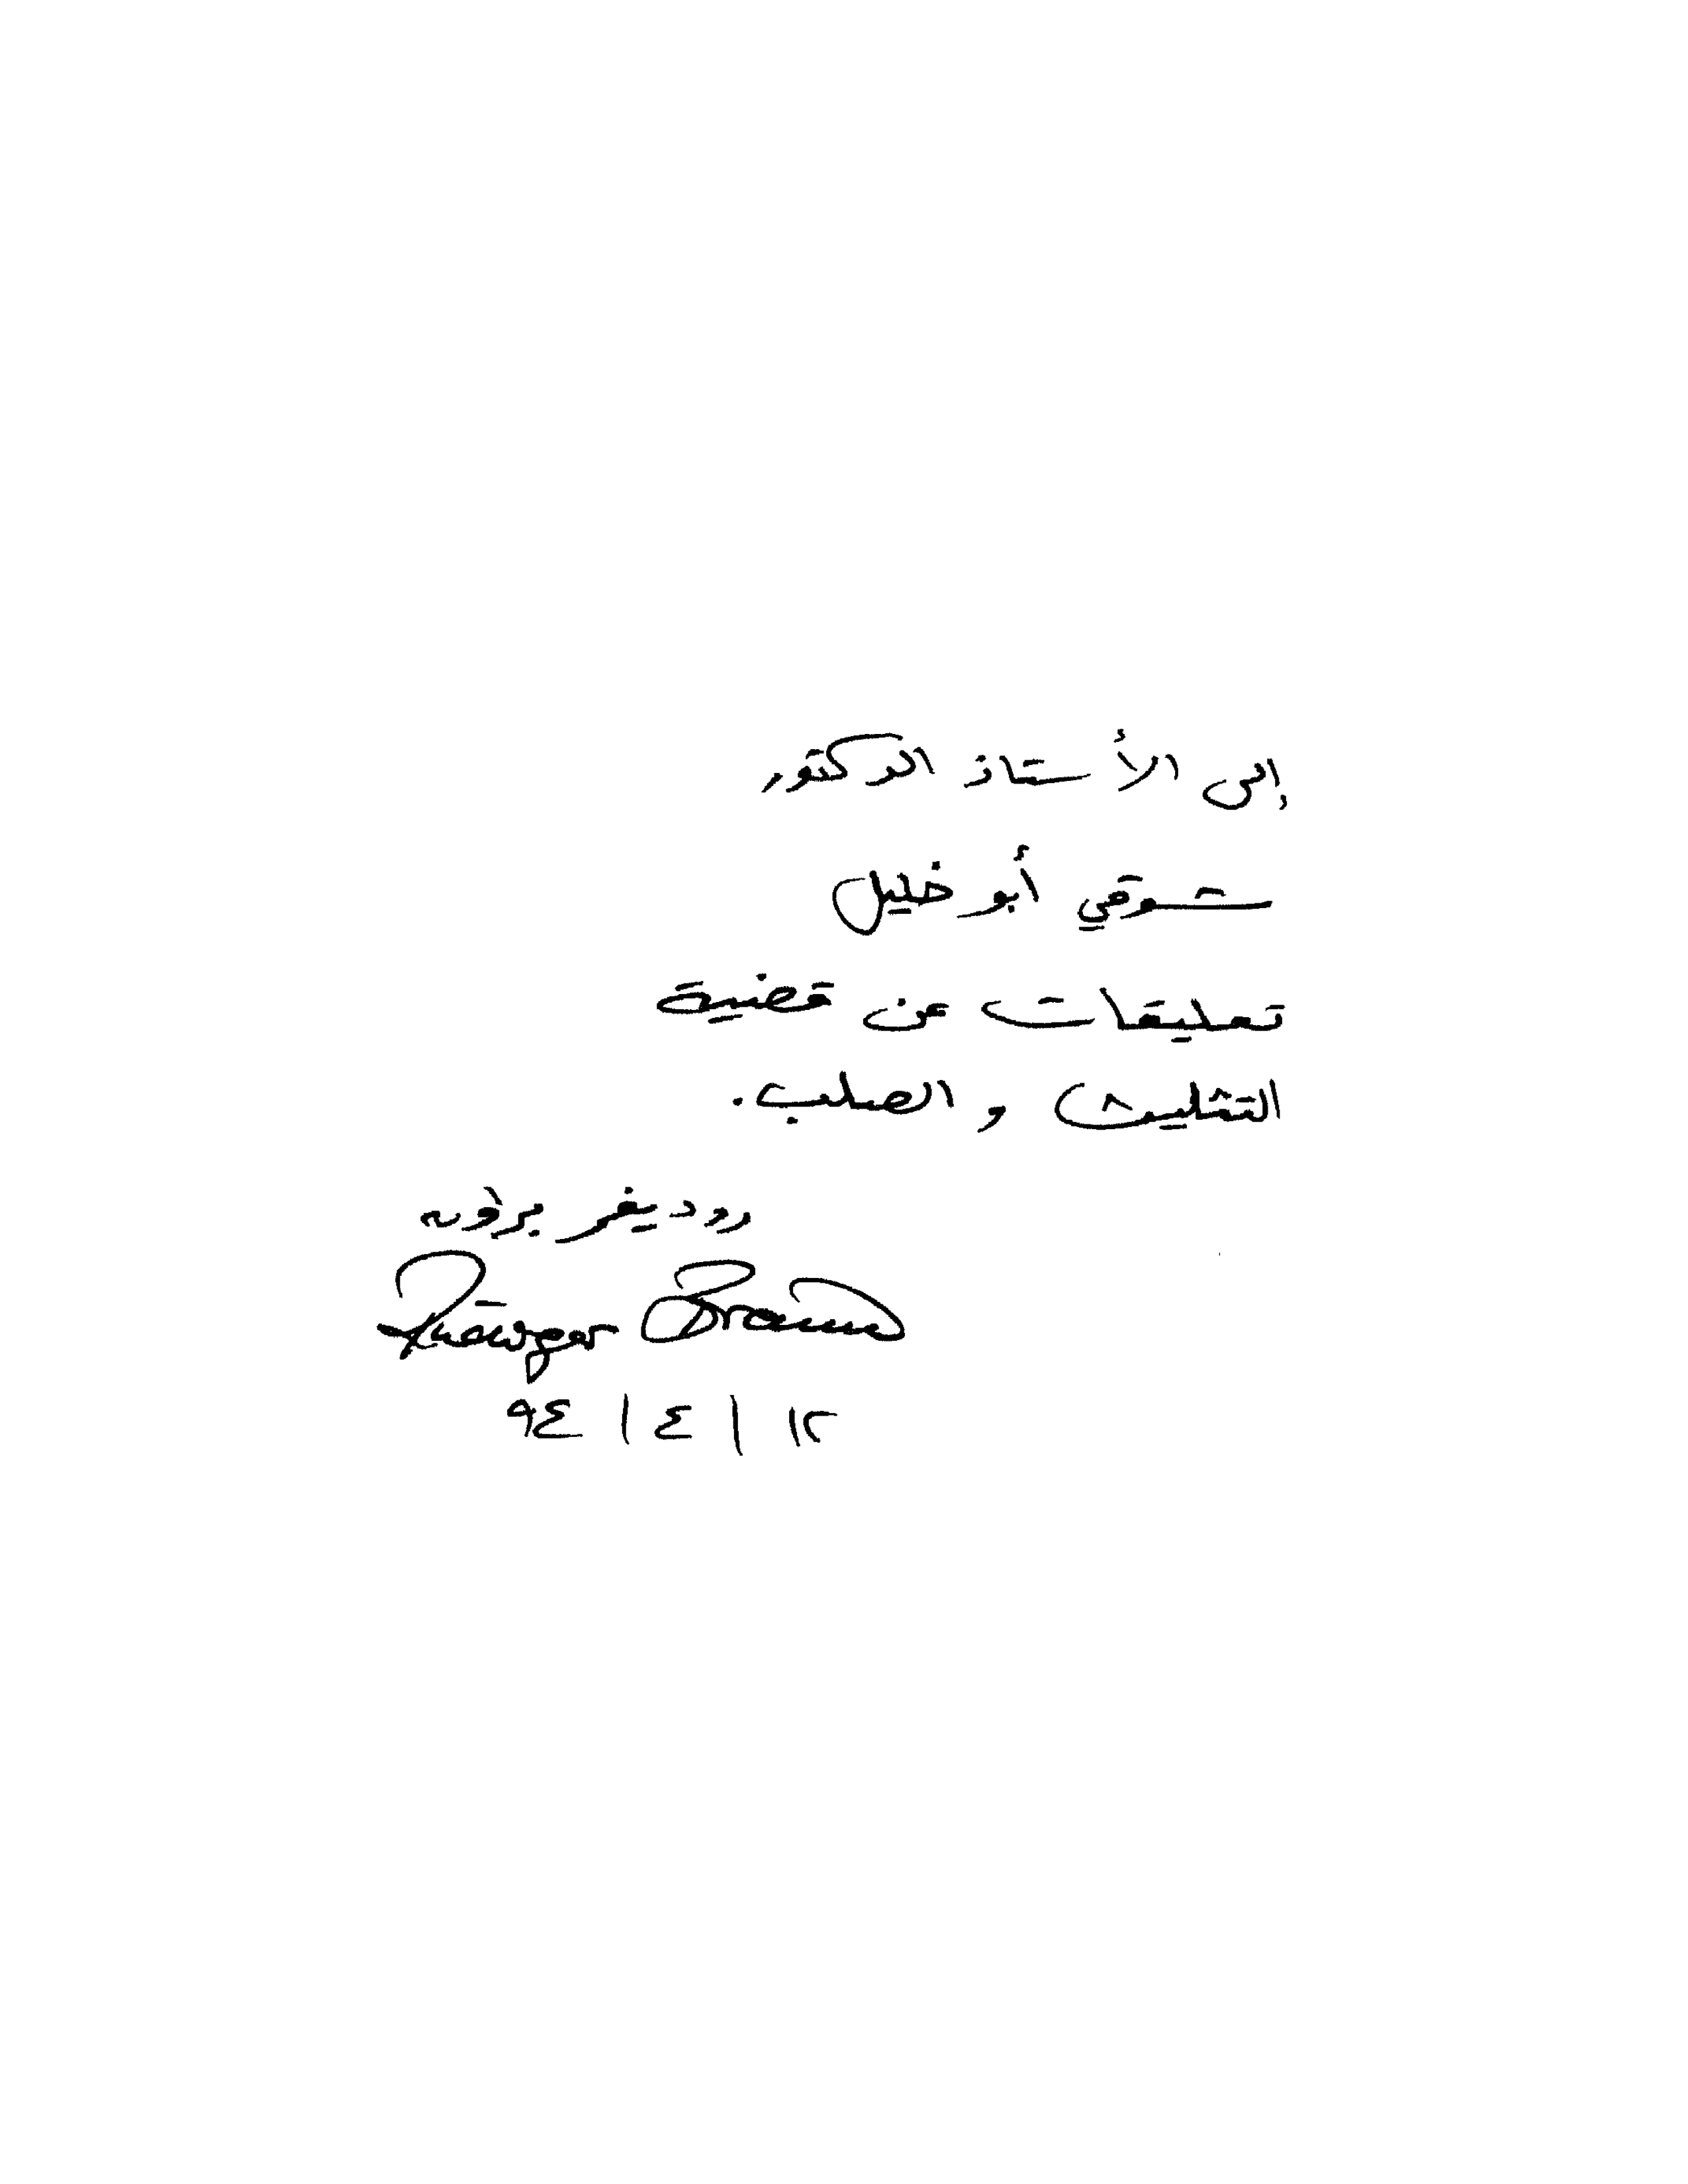 إلى الأستاذ الدكتور
شوقي أبو خليل
تعليقات عن قضية
التثليث والصلب.
روديغر براون
Rüdiger Braun
١٢ / ٤ / ٩٤